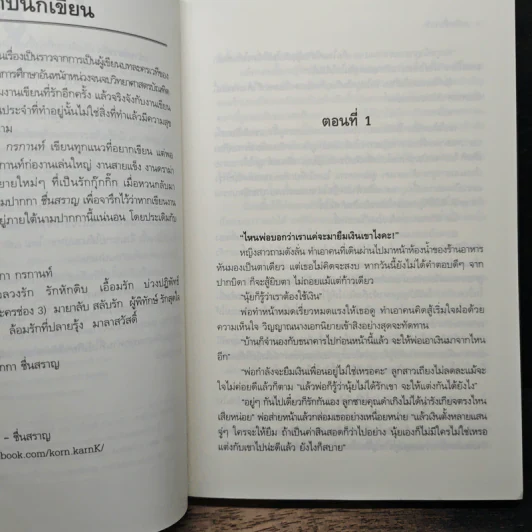 นักเขียน
นเรื่องเป็นราวจากการเป็นผู้เขียนบทละครเวทีของ
การศึกษาอันหนักหน่วงจนจบวิทยาศาสตรบัณฑิต
มงานเขียนที่รักอีกครั้ง แล้วจริงจังกับงานเขียน
นประจำที่ทำอยู่นั้นไม่ใช่สิ่งที่ทำแล้วมีความสุข
าม
กรกานท์ เขียนทุกแนวที่อยากเขียน แต่พอ
กานท์ก่องานเล่นใหญ่ งานสายแข็ง งานดราม่า
ยายใหม่ๆ ที่เป็นรักกุ๊กกิ๊ก เมื่อหวนกลับมา
ามปากกา ชื่นสราญ เพื่อจารึกไว้ว่าหากเขียนงาน
ยู่ภายใต้นามปากกานี้แน่นอน โดยประเดิมกับ
กา กรกานท์
ลวงรัก รักหักดิบ เอื้อมรัก บ่วงปฏิพัทธ์
ะครช่อง 3) มายาลับ สลับรัก ผู้พิทักษ์ รักสุดใจ
ล้อมรักที่ปลายรุ้ง มาลาสวัสดิ์
กกา ชื่นสราญ
– ชื่นสราญ
book.com/korn.karnK/
ตอนที่ 1
"ไหนพ่อบอกว่าเราแค่จะมายืมเงินเขาไงคะ!"
หญิงสาวถามดังลั่น ทำเอาคนที่เดินผ่านไปมาหน้าห้องน้ำของร้านอาหาร
หันมองเป็นตาเดียว แต่เธอไม่คิดจะสงบ หากวันนี้ยังไม่ได้คำตอบดีๆ จาก
ปากบิดา ก็จะสู้ยิบตา ไม่ถอยแม้แต่ก้าวเดียว
"นุ้ยก็รู้ว่าเราต้องใช้เงิน"
พ่อทำหน้าหมดเรี่ยวหมดแรงให้เธอดู ทำเอาคนคิดสู้เริ่มไฝ่อด้วย
ความเห็นใจ วิญญาณนางเอกนิยายเข้าสิงอย่างสุดจะทัดทาน
"บ้านก็จำนองกับธนาคารไปก่อนหน้านี้แล้ว จะให้พ่อเอาเงินมาจากไหน
อีก"
"พ่อกำลังจะยืมเงินเพื่อนอยู่ไม่ใช่เหรอคะ" ลูกสาวเถียงไม่ลดละแม้จะ
ใจไม่ค่อยดีแล้วก็ตาม "แล้วพ่อก็รู้ว่านุ้ยไม่ได้รักเขา จะให้แต่งกันได้ยังไง"
"อยู่ๆ กันไปเดี๋ยวก็รักกันเอง ลูกชายคุณดำเกิงไม่ได้น่ารังเกียจตรงไหน
เสียหน่อย" พ่อส่ายหน้าแล้วกล่อมเธออย่างเหนื่อยหน่าย "แล้วเงินตั้งหลายแสน
จู่ๆ ใครจะให้ยืม ถ้าเป็นค่าสินสอดก็ว่าไปอย่าง นุ้ยเองก็ไม่มีใครไม่ใช่เหรอ
แต่งกับเขาไปน่ะดีแล้ว ยังไงก็สบาย"